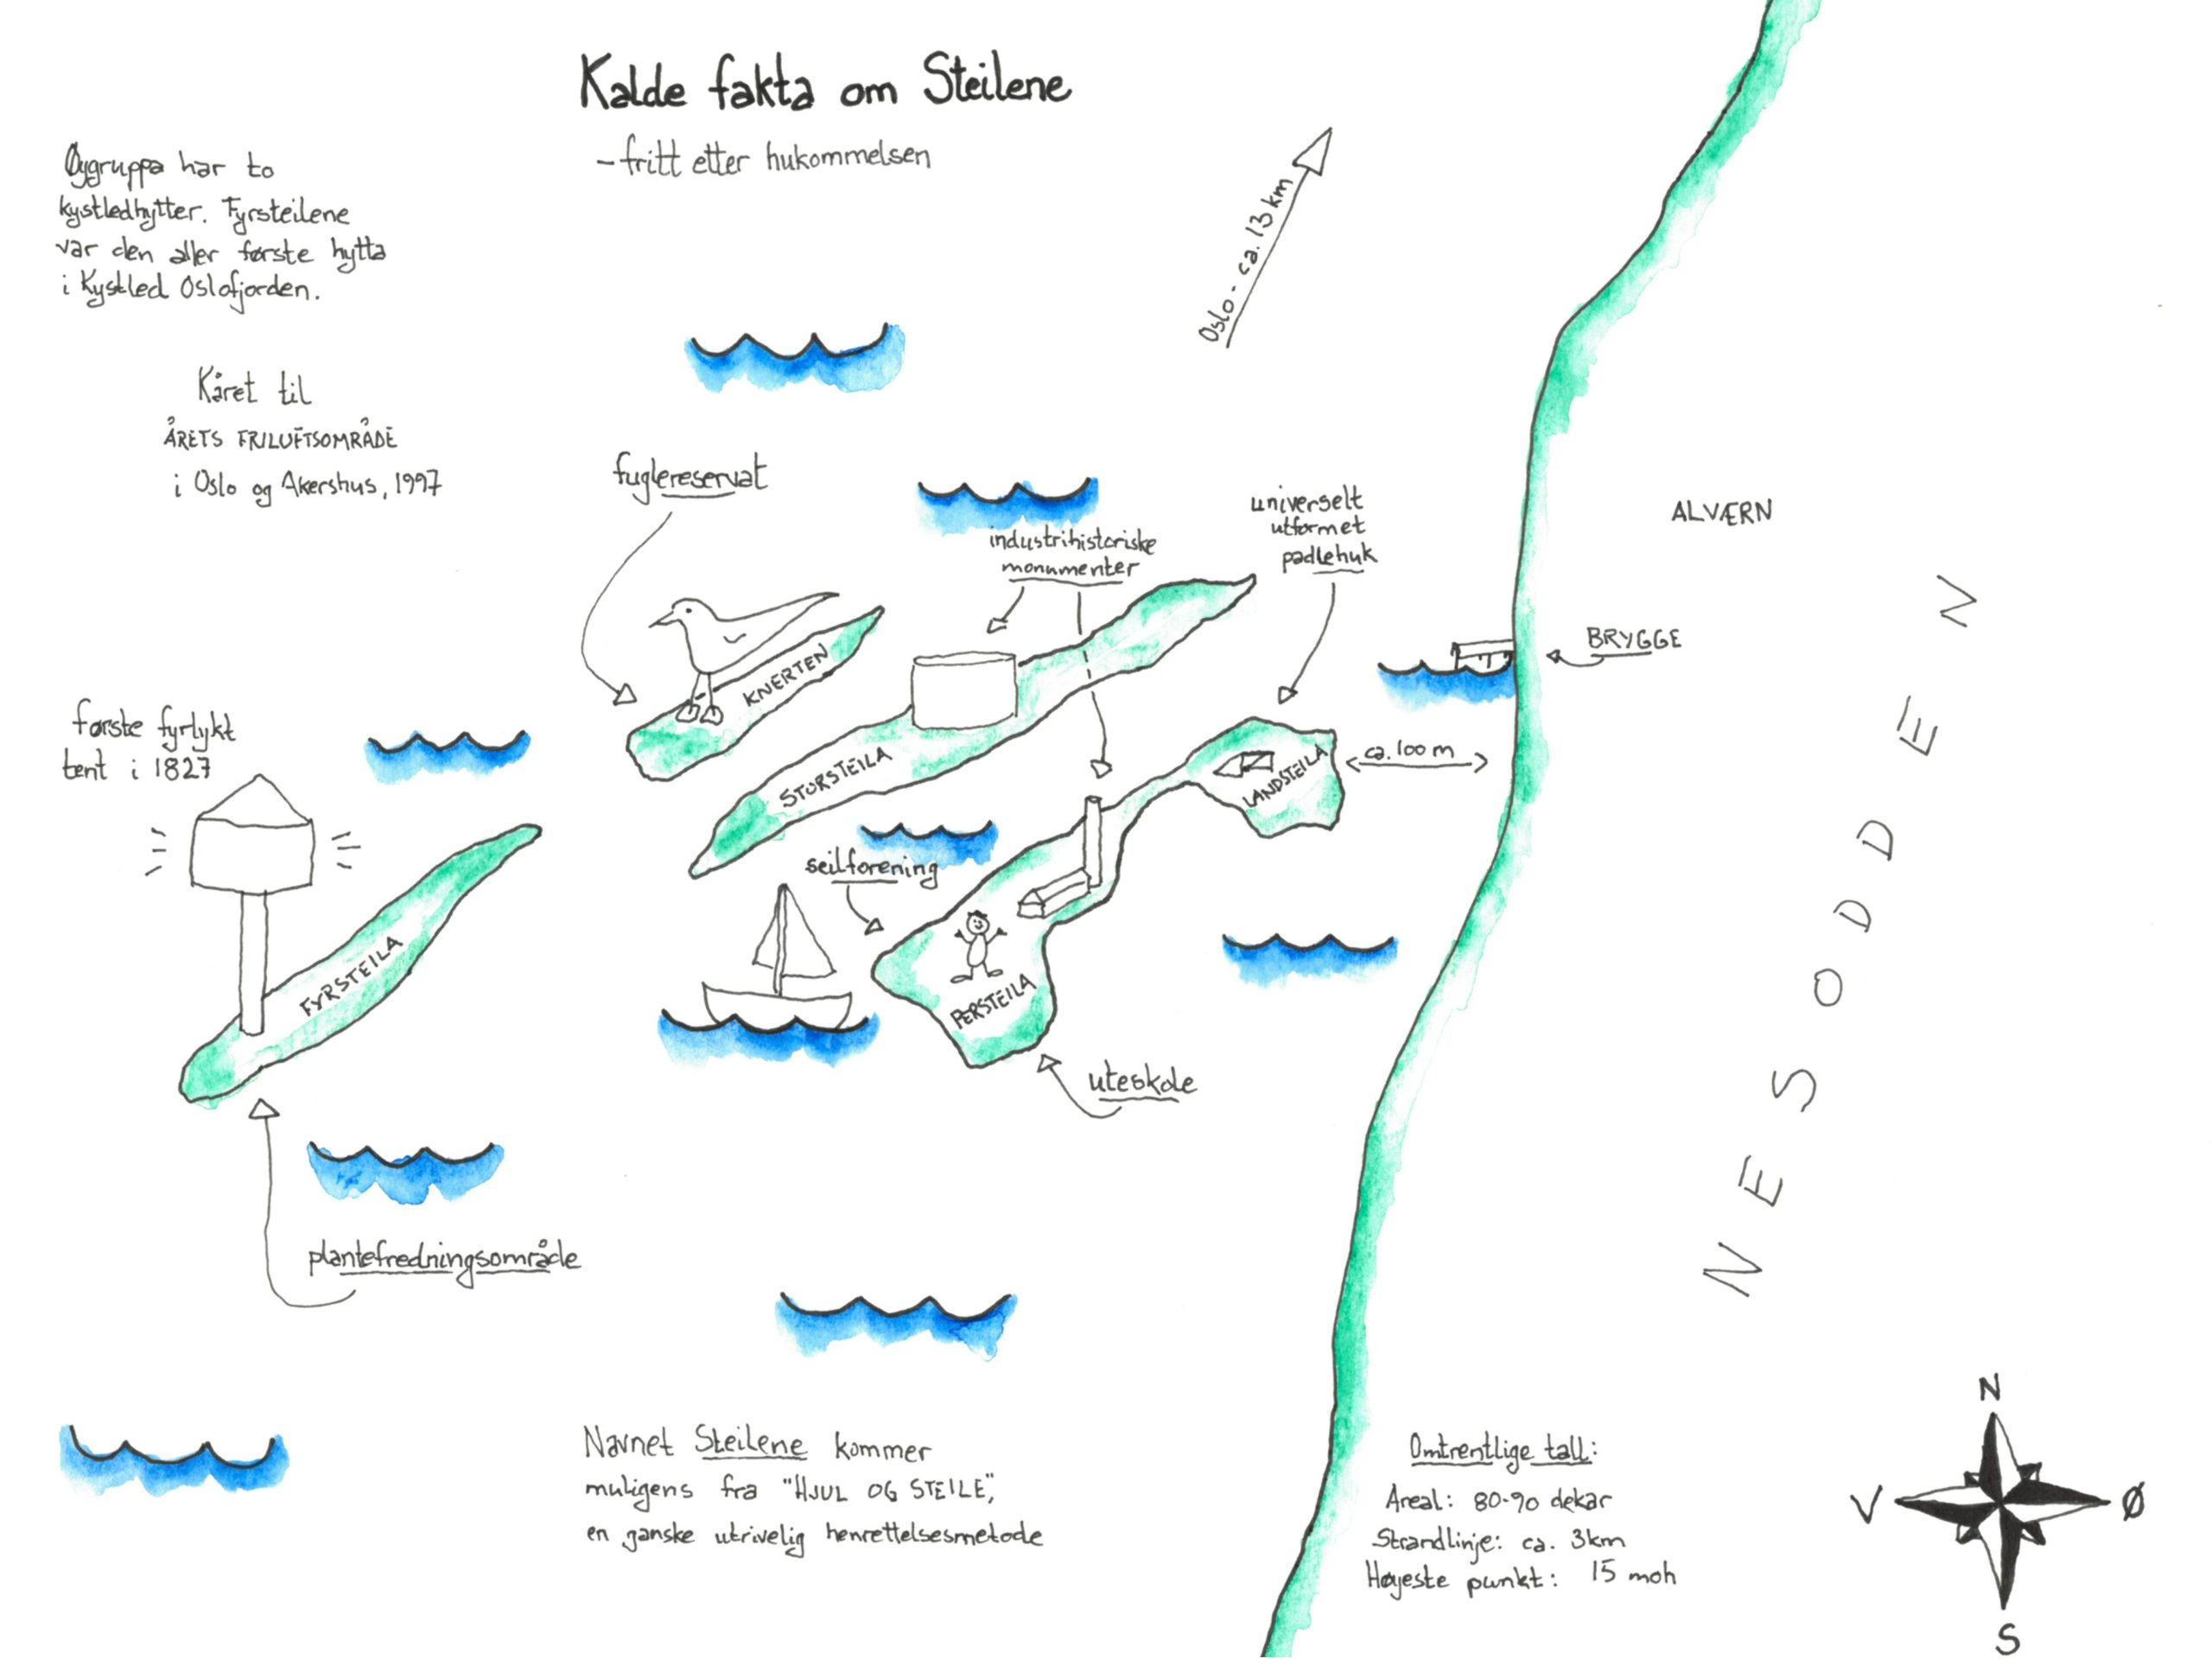 Kalde fakta om Steilene
- fritt etter hukommelsen
Øygruppa har to
kystledhytter. Fyrsteilene
var den aller første hytta
i Kystled Oslofjorden.
Kåret til
ÅRETS FRILUFTSOMRÅDE
i Oslo og Akershus, 1997
Oslo - ca. 13 km
fuglereservat
industrihistoriske
monumenter
universelt
utformet
padlehuk
ALVÆRN
BRYGGE
NESODDEN
KNERTEN
STORSTEILA
LANDSTEILA
ca. 100 m
første fyrlykt
tent i 1827
FYRSTEILA
seilforening
PERSTEILA
uteskole
plantefredningsområde
Navnet Steilene kommer
muligens fra "HJUL OG STEILE",
en ganske utrivelig henrettelsesmetode
Omtrentlige tall:
Areal: 80-90 dekar
Strandlinje: ca. 3km
Høyeste punkt: 15 moh
N
V
Ø
S